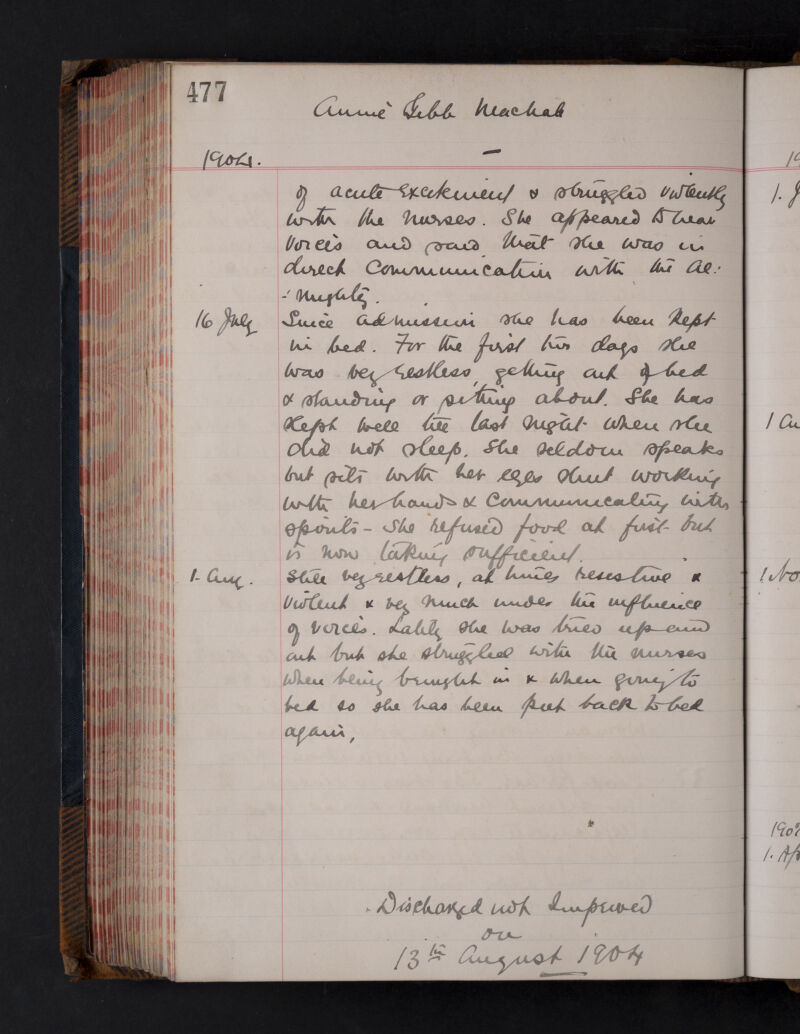 477
Annie Gibb Machab
1904. –
of acute excitement & struggled violently
with the nurses. She appeared to hear
voices and said that she was in
direct communication with the Al:
-:mighty.
16 July Since admission she has been kept
in bed. For the first two days she
was very restless, getting out of bed
& standing or sitting about. She has
slept well till last night when she
did not sleep. She seldom speaks
but sits with her eyes shut working
with her hands & communicating with
spirits – She refused food at first but
is now taking sufficient.
1 Aug. Still very restless, at times resistive &
violent & very much under the influence
of voices. Lately she was tried up and
out but she struggled with the nurses
when being brought in & when going to
bed so she has been put back to bed
again,
Discharged not Improved
on
13th August 1904
1.
1
1 No
190
1. Ap